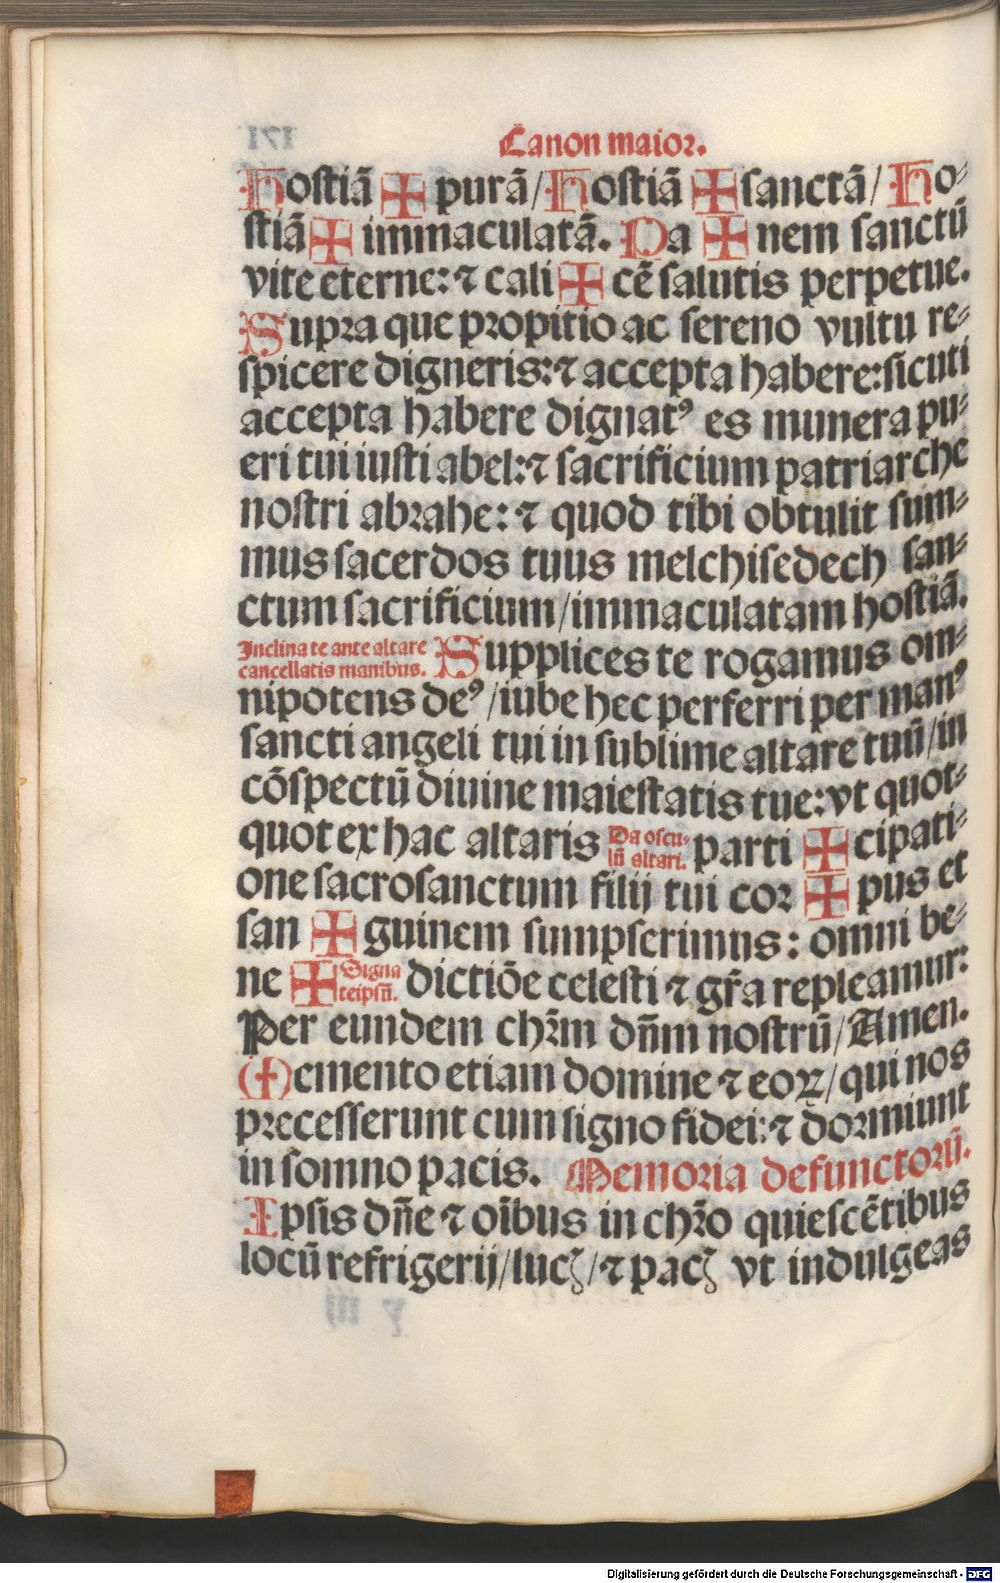 Canon maior.
Hostiã ✠ purã/ Hostiã ✠ sanctã/ Ho⸗
stiã ✠ immaculatã. Pa ✠ nem sanctũ
vite eterne: ⁊ cali ✠ cẽ salutis perpetue.
Supra que propitio ac sereno vultu re⸗
spicere digneris: ⁊ accepta habere: sicuti
accepta habere dignatꝰ es munera pu⸗
eri tui iusti abel: ⁊ sacrificium patriarche
nostri abrahe: ⁊ quod tibi obtulit sum⸗
mus sacerdos tuus melchisedech san⸗
ctum sacrificium/ immaculatam hostiã.
Inclina te ante altare
cancellatis manibus. Supplices te rogamus om⸗
nipotens deꝰ/ iube hec perferri per manꝰ
sancti angeli tui in sublime altare tuũ/ in
cõspectũ diuine maiestatis tue: vt quot⸗
quot ex hac altaris Da oscu⸗
lũ altari. parti ✠ cipati⸗
one sacrosanctum filij tui cor ✠ pus et
san ✠ guinem sumpserimus: omni be⸗
ne ✠ Signa
teipsũ. dictiõe celesti ⁊ gr̃a repleamur:
Per eundem chr̃m dñm nostrũ/ Amen.
Memento etiam domine ⁊ eoꝝ/ qui nos
precesserunt cum signo fidei: ⁊ dormiunt
in somno pacis. Memoria defunctorũ.
Ipsis dñe ⁊ oĩbus in chr̃o quiescẽtibus
locũ refrigerij/ lucꝭ/ ⁊ pacꝭ vt indulgeas
Digitalisierung gefördert durch die Deutsche Forschungsgemeinschaft - DFG